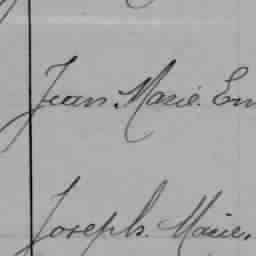 Jean Marie Em
Joseph Marie.